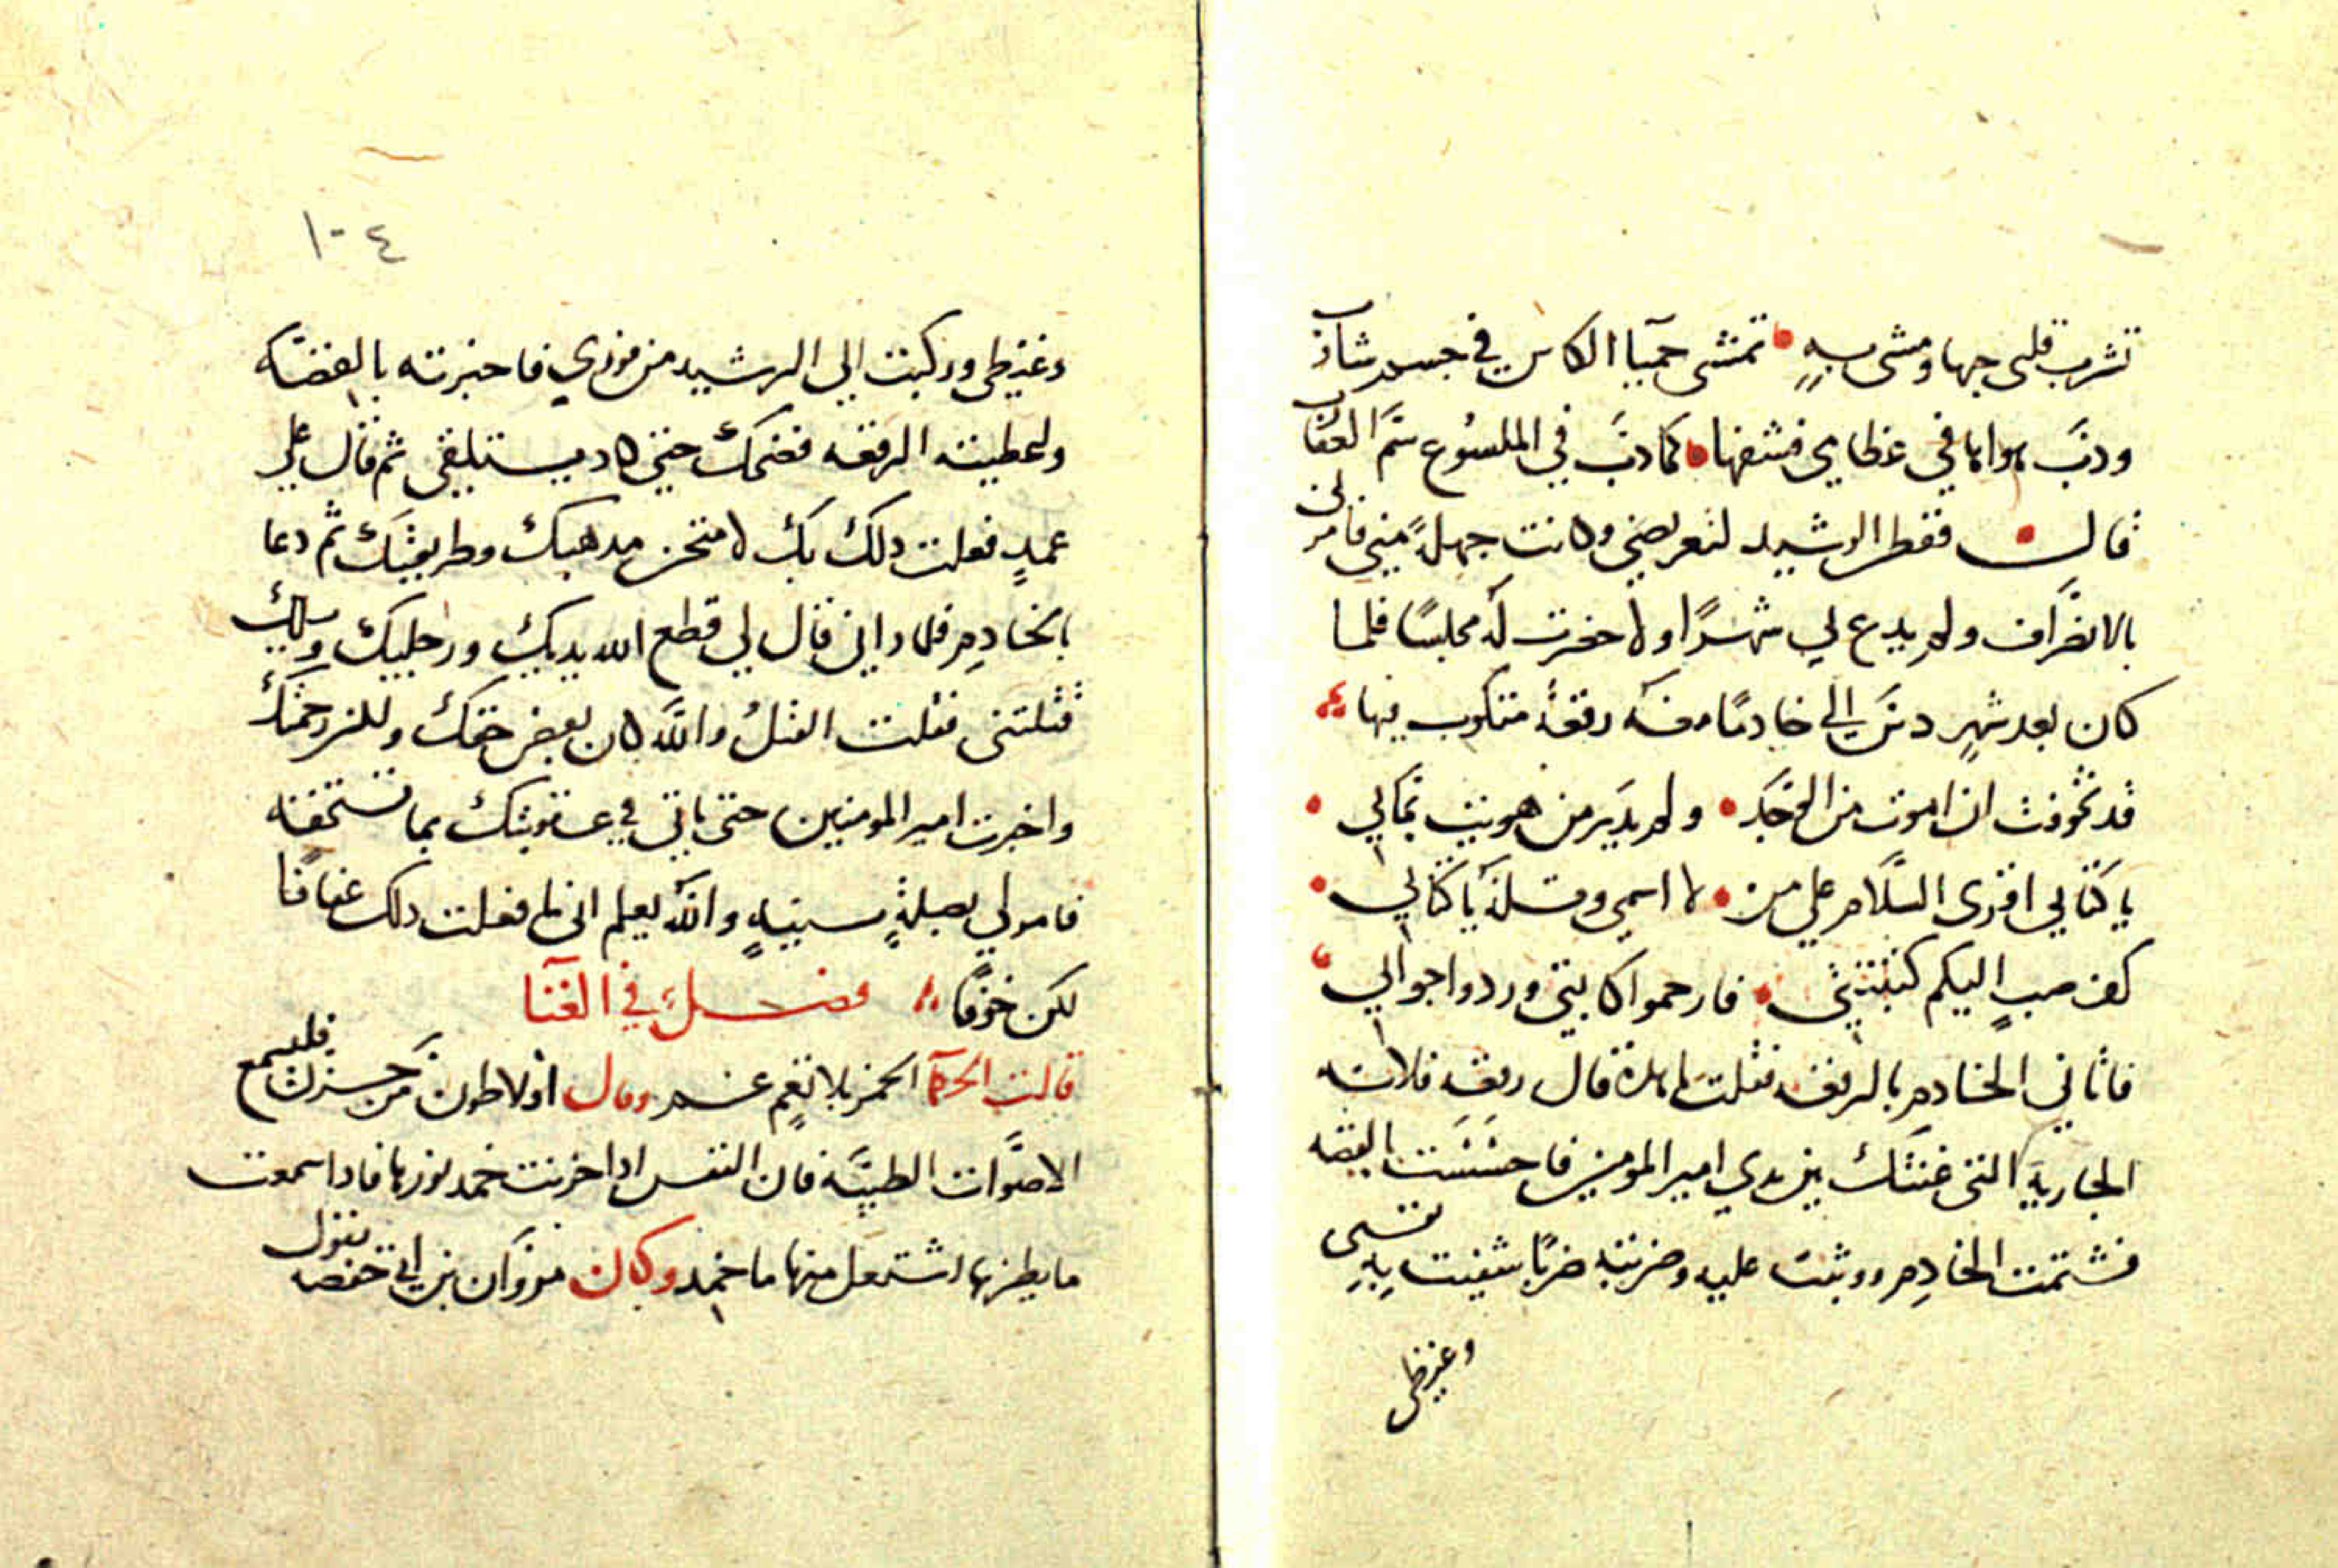 تشرب قلبى حبها ومشى به • تمشى حميا الكاس في جسد شارب
ودب هواها في عظامي فشفها • كما دب في الملسوع سم العقارب
قال • ففطن الرشيد لتعريضي وكانت جهلة مني فامر لى
بالانصراف ولم يدع لي شهرًا ولا حضرت له مجلسًا فلما
كان بعد شهر دس الي خادمًا معه رقعة مكتوب فيها
قد تخوفت ان اموت من الوجد • ولم يدر من هويت بما بي •
يا كتابي اقرى السلام على من • لا اسمى وقل له يا كتابي •
كف صب اليكم كتبتني • فارحموا كاتبتي وردوا جوابي
فاتاني الخادم بالرقعه فقلت ما هذه قال رقعه فلانه
الجارية التى غنتك بين يدي امير المومنين فاحسست القصه
فشتمت الخادم ووثبت عليه وضربته ضربًا شفيت به نفسى
وغيظى
١٠٤
وغيظى وركبت الى الرشيد من فوري فاخبرته بالقصه
واعطيته الرقعه فضحك حتى كاد يستلقى ثم قال على
عمدٍ فعلت ذلك بك لامتحن مدهبك وطريقتك ثم دعا
بالخادم فلما راني قال لي قطع الله يديك ورجليك ويلك
قتلتنى فقلت القتل والله كان بعض حقك
واخبرت امير المومنين حتى ياتي في عقوبتك بما تستحقه
فامر لي بصلةٍ سنيةٍ والله يعلم انى ما فعلت دلك عفافا
لكن خوفًا فصل في الغنا
قالت الحكما الخمر بلا نغم غم وقال افلاطون من حزن فليسمع
الاصوات الطيبه فان النفس ادا حزنت خمد نورها فادا سمعت
ما يطربها اشتعل منها ما خمد وكان مروان بن ابي حفصه يقول